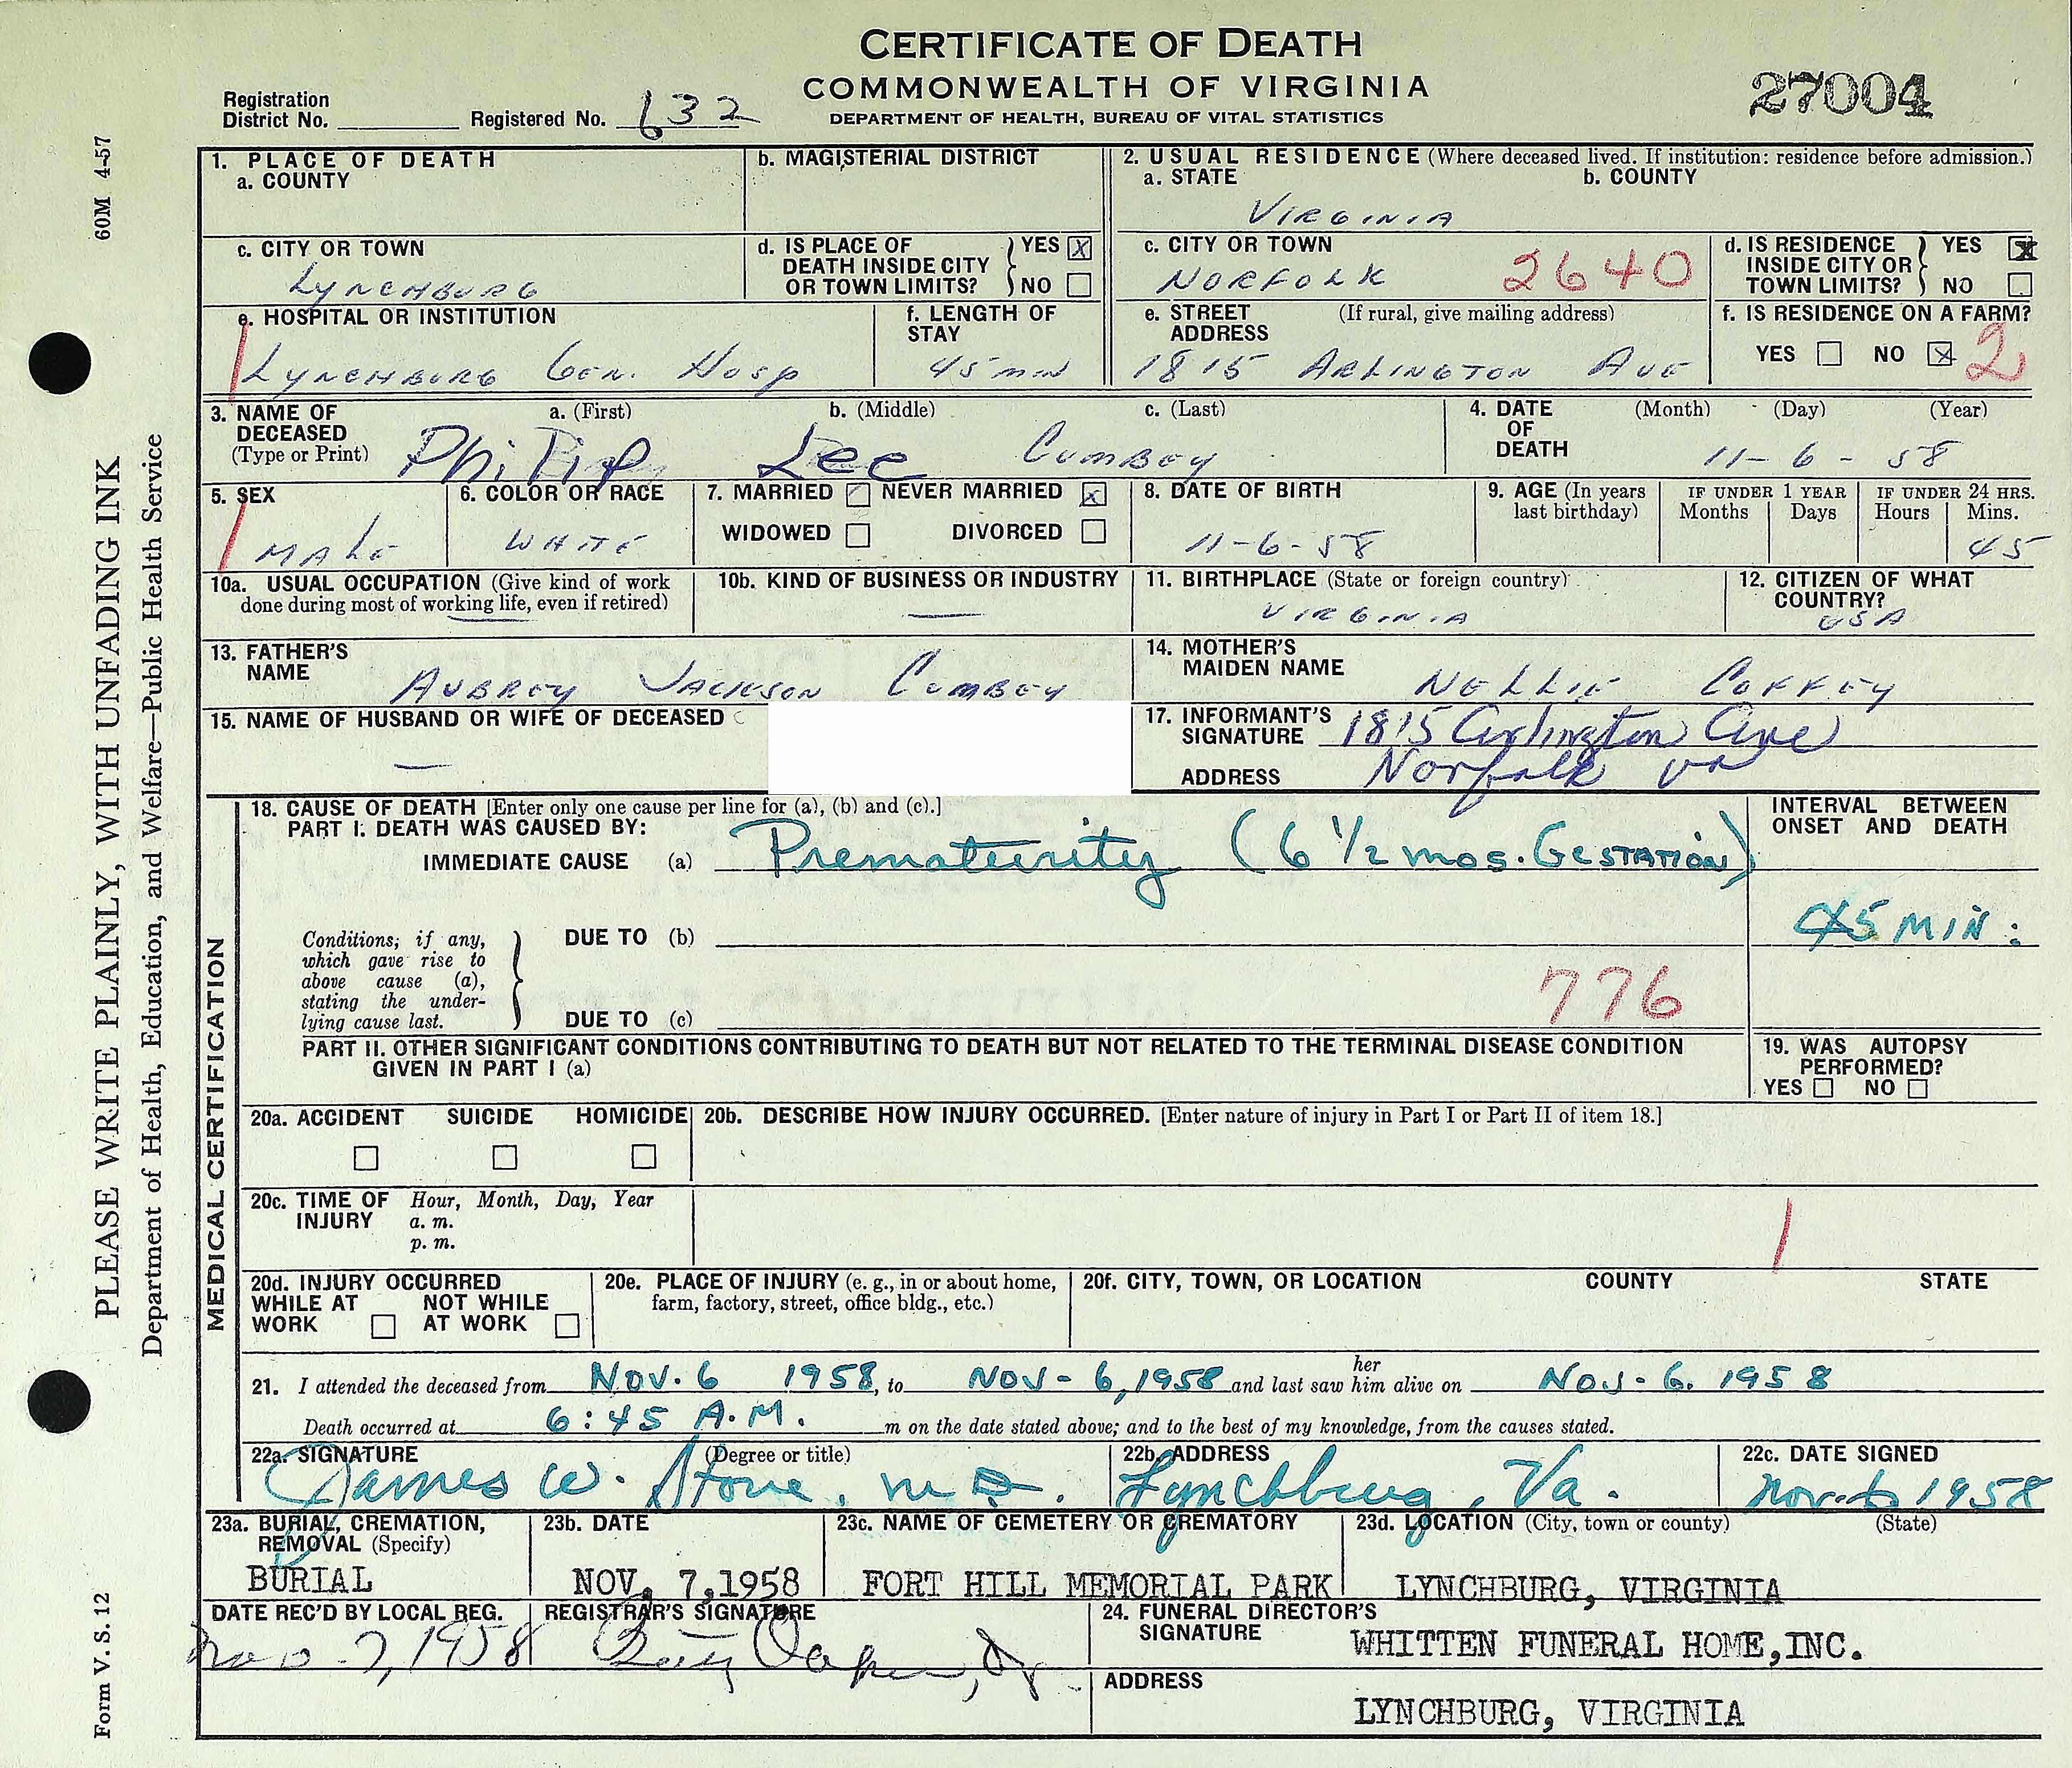 CERTIFICATE OF DEATH
COMMONWEALTH OF VIRGINIA
DEPARTMENT OF HEALTH, BUREAU OF VITAL STATISTICS
27004
Registration District No. Registered No. 632
60M 4-57
PLEASE WRITE PLAINLY, WITH UNFADING INK
Department of Health, Education, and Welfare—Public Health Service
Form V. S. 12
1. PLACE OF DEATH
a. COUNTY
b. MAGISTERIAL DISTRICT
2. USUAL RESIDENCE (Where deceased lived. If institution: residence before admission.)
a. STATE b. COUNTY
VIRGINIA
c. CITY OR TOWN
LYNCHBURG
d. IS PLACE OF DEATH INSIDE CITY OR TOWN LIMITS? YES X NO
c. CITY OR TOWN
NORFOLK 2640
d. IS RESIDENCE INSIDE CITY OR TOWN LIMITS? YES X NO
e. HOSPITAL OR INSTITUTION
LYNCHBURG GEN. HOSP
f. LENGTH OF STAY
45 MIN
e. STREET ADDRESS (If rural, give mailing address)
1815 ARLINGTON AVE
f. IS RESIDENCE ON A FARM?
YES NO X 2
3. NAME OF DECEASED (Type or Print)
a. (First) b. (Middle) c. (Last)
Philip Lee Cumbey
4. DATE OF DEATH (Month) (Day) (Year)
11-6-58
5. SEX
MALE
6. COLOR OR RACE
WHITE
7. MARRIED NEVER MARRIED X
WIDOWED DIVORCED
8. DATE OF BIRTH
11-6-58
9. AGE (In years last birthday)
IF UNDER 1 YEAR
Months Days
IF UNDER 24 HRS.
Hours Mins.
45
10a. USUAL OCCUPATION (Give kind of work done during most of working life, even if retired)
10b. KIND OF BUSINESS OR INDUSTRY
—
11. BIRTHPLACE (State or foreign country)
VIRGINIA
12. CITIZEN OF WHAT COUNTRY?
USA
13. FATHER'S NAME
AUBREY JACKSON CUMBEY
14. MOTHER'S MAIDEN NAME
NELLIE COFFEY
15. NAME OF HUSBAND OR WIFE OF DECEASED
—
17. INFORMANT'S SIGNATURE 1815 Arlington Ave
ADDRESS Norfolk va
MEDICAL CERTIFICATION
18. CAUSE OF DEATH [Enter only one cause per line for (a), (b) and (c).]
PART I. DEATH WAS CAUSED BY:
IMMEDIATE CAUSE (a) Prematurity (6 1/2 mos. GESTATION)
INTERVAL BETWEEN ONSET AND DEATH
45 MIN.
Conditions, if any, which gave rise to above cause (a), stating the underlying cause last.
DUE TO (b)
776
DUE TO (c)
PART II. OTHER SIGNIFICANT CONDITIONS CONTRIBUTING TO DEATH BUT NOT RELATED TO THE TERMINAL DISEASE CONDITION GIVEN IN PART I (a)
19. WAS AUTOPSY PERFORMED?
YES NO
20a. ACCIDENT SUICIDE HOMICIDE
20b. DESCRIBE HOW INJURY OCCURRED. [Enter nature of injury in Part I or Part II of item 18.]
20c. TIME OF INJURY Hour, Month, Day, Year
a. m.
p. m.
20d. INJURY OCCURRED
WHILE AT WORK NOT WHILE AT WORK
20e. PLACE OF INJURY (e. g., in or about home, farm, factory, street, office bldg., etc.)
20f. CITY, TOWN, OR LOCATION COUNTY STATE
21. I attended the deceased from NOV. 6 1958, to NOV - 6, 1958 and last saw her him alive on NOV - 6. 1958
Death occurred at 6:45 A.M. m on the date stated above; and to the best of my knowledge, from the causes stated.
22a. SIGNATURE (Degree or title)
James W. Stone, M.D.
22b. ADDRESS
Lynchburg, Va.
22c. DATE SIGNED
Nov. 6 1958
23a. BURIAL, CREMATION, REMOVAL (Specify)
BURIAL
23b. DATE
NOV. 7,1958
23c. NAME OF CEMETERY OR CREMATORY
FORT HILL MEMORIAL PARK
23d. LOCATION (City, town or county) (State)
LYNCHBURG, VIRGINIA
DATE REC'D BY LOCAL REG.
Nov - 7, 1958
REGISTRAR'S SIGNATURE
24. FUNERAL DIRECTOR'S SIGNATURE
WHITTEN FUNERAL HOME,INC.
ADDRESS
LYNCHBURG, VIRGINIA